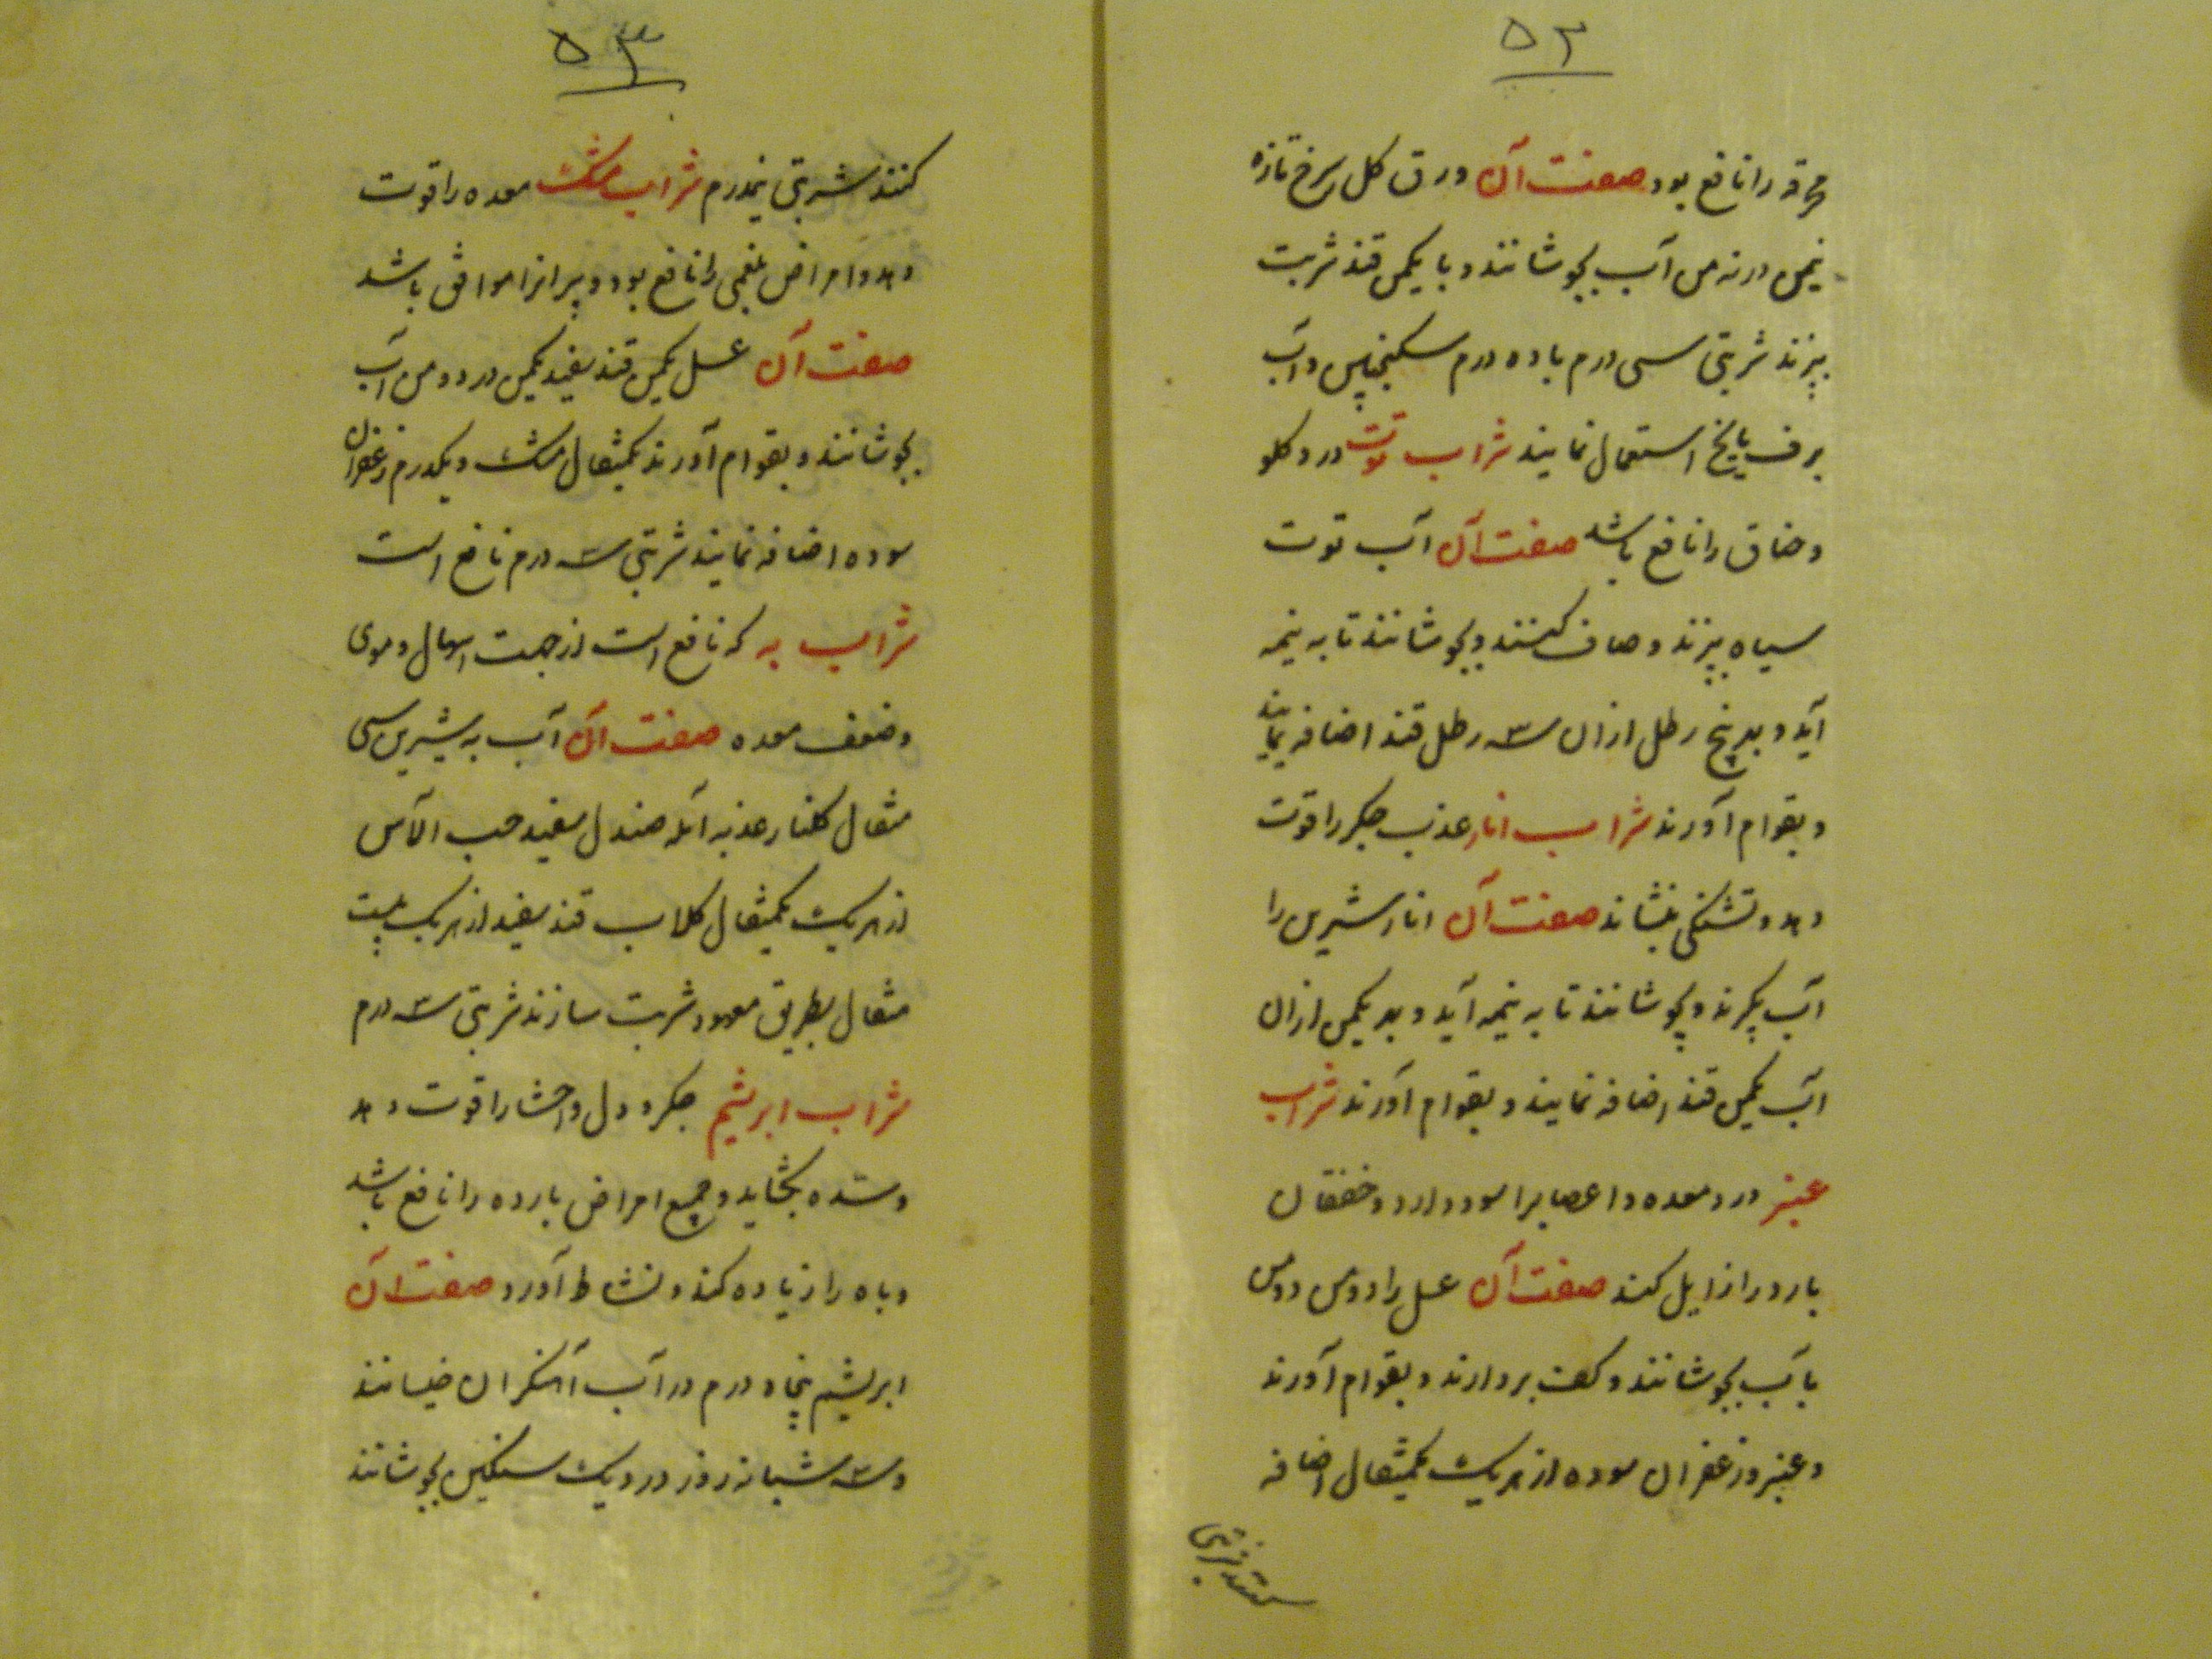 ۵۲
محرقه را نافع بود صفت آن ورق کل سرخ تازه
نیمن در نه من آب بجوشانند و با یکمن قند شربت
بپزند شربتی سی درم با ده درم سکنجبین و آب
برف یا یخ استعمال نمایند شراب توت درد کلو
و خناق را نافع باشد صفت آن آب توت
سیاه بپزند و صاف کنند و بجوشانند تا به نیمه
آید و بد پنج رطل ازان سه رطل قند اضافه نمایند
و بقوام آورند شراب انار عذب جکر را قوت
دهد و تشنکی بنشاند صفت آن انار شیرین را
آب بکیرند و بجوشانند تا به نیمه آید و بد یکمن ازان
آب یکمن قند اضافه نمایند و بقوام آورند شراب
عنبر درد معده و اعصابرا سود دارد و خفقان
بارد را زایل کند صفت آن عسل را دو من در دو من
بآب بجوشانند و کف بردارند و بقوام آورند
و عنبر و زعفران سوده از هریک یکمثقال اضافه
۵۳
کنند شربتی نیمدرم شراب مشک معده را قوت
دهد و امراض بلغمی را نافع بود و پیرانرا موافق باشد
صفت آن عسل یکمن قند سفید یکمن در دو من آب
بجوشانند و بقوام آورند یکمثقال مشک و یکدرم زعفران
سوده اضافه نمایند شربتی سه درم نافع است
شراب به که نافع است از جهت اسهال دموی
و ضعف معده صفت آن آب به شیرین سی
مثقال کلنار عذبه آمله صندل سفید حب الآس
از هریک یکمثقال کلاب قند سفید از هریک بیست
مثقال بطریق معهود شربت سازند شربتی سه درم
شراب ابریشم جکر و دل و احشا را قوت دهد
و سده بکشاید و جمیع امراض بارده را نافع باشد
و باه را زیاده کند و نشاط آورد صفت آن
ابریشم پنجاه درم در آب آهنکران خیسانند
و سه شبانه روز در دیک سنکین بجوشانند